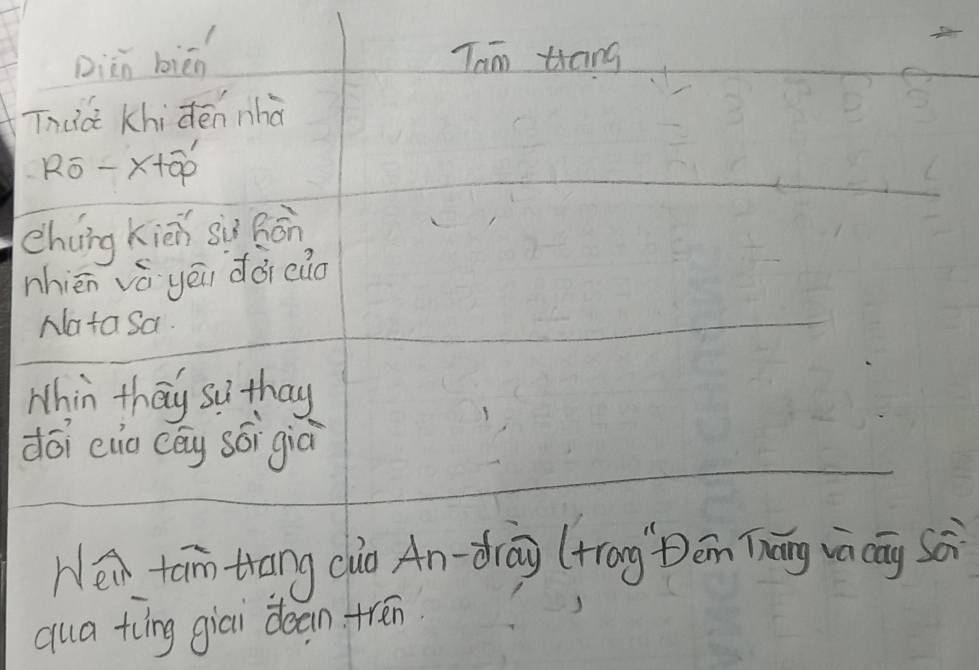 Diễn biến Tâm trạng
Trước khi đến nhà
Rô - xtốp
Chứng kiến sự hồn
nhiên và yêu đời của
Natasa.
Nhìn thấy sự thay
đổi của cây sồi già
Nêu tâm trạng của An-đrây (trong "Đêm Trăng và cây Sồi
qua từng giai đoạn trên.